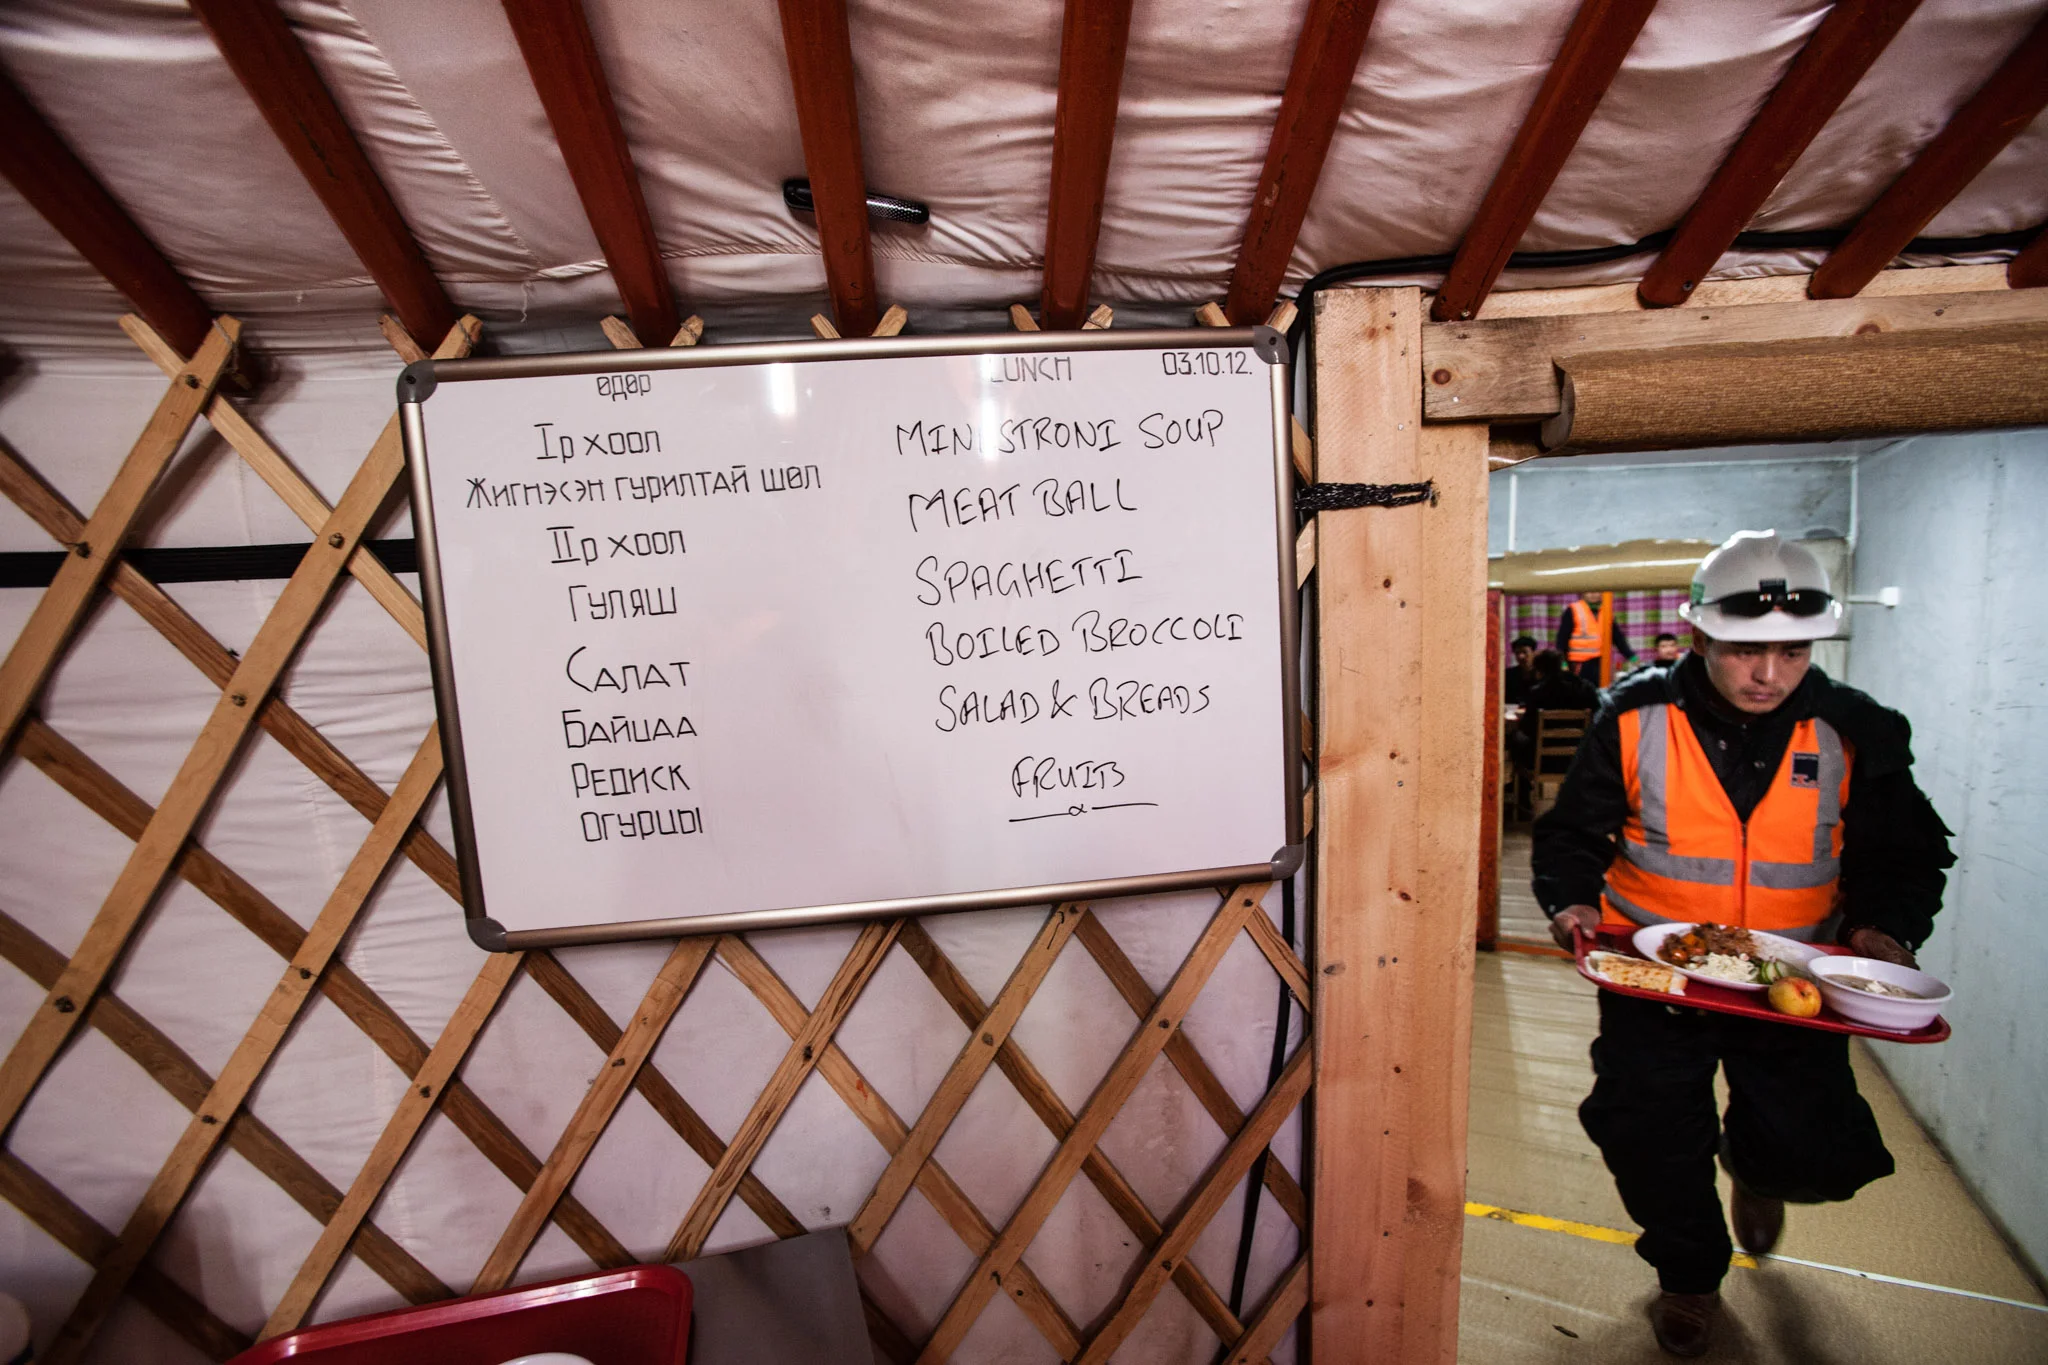 өдөр
Iр хоол
Жигнэсэн гурилтай шөл
IIр хоол
Гуляш
Салат
Байцаа
Редиск
огурцы
LUNCH
03.10.12.
MINESTRONI SOUP
MEAT BALL
SPAGHETTI
BOILED BROCCOLI
SALAD & BREADS
FRUITS